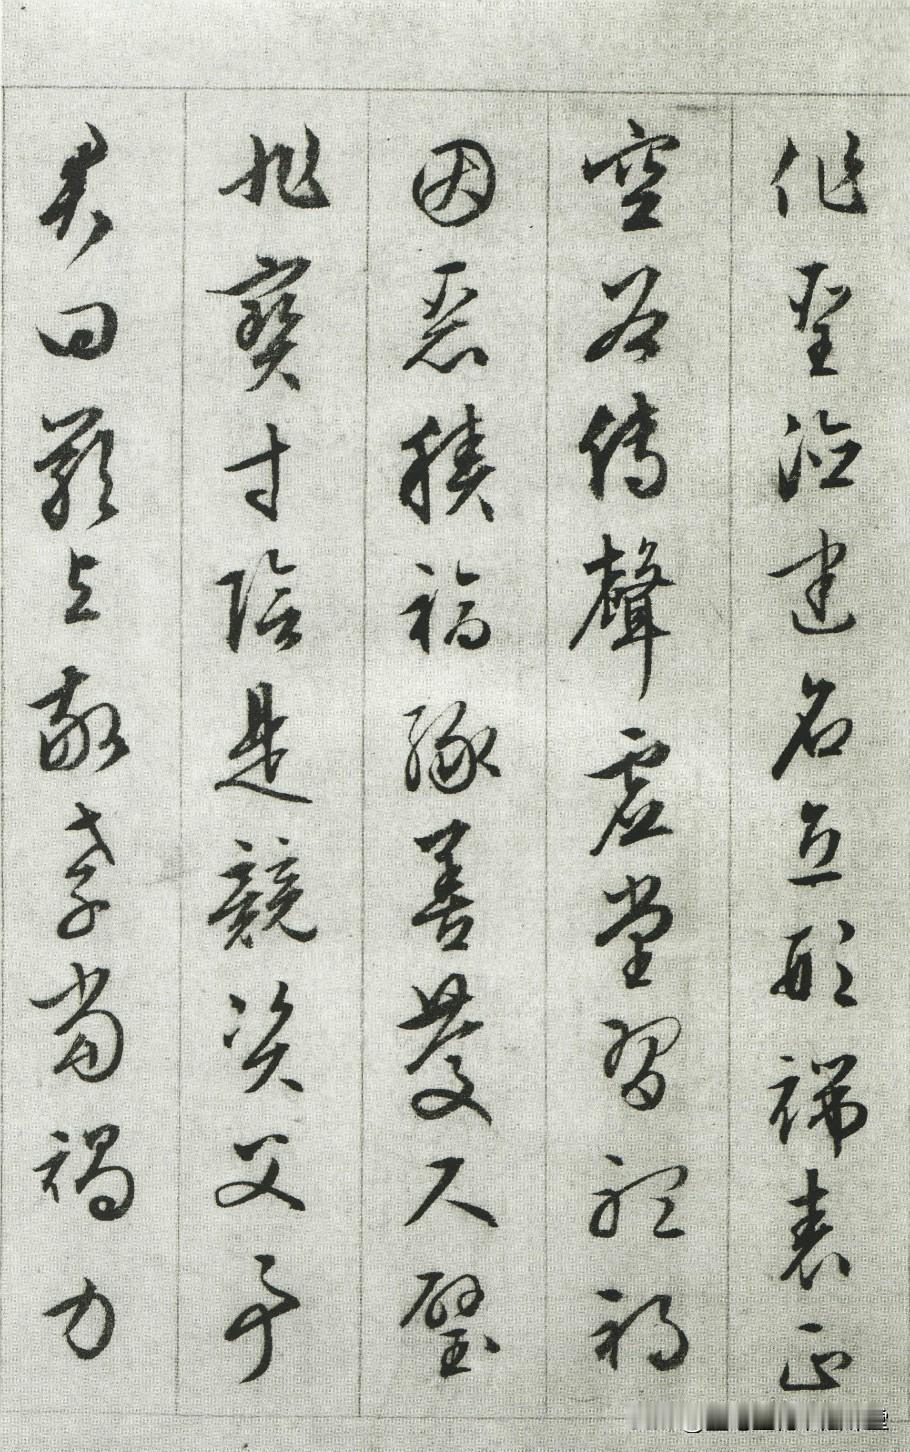 作聖德建名立形端表正
空谷傳聲虛堂習聽禍
因惡積福緣善慶尺璧
非寶寸陰是競資父事
君曰嚴與敬孝當竭力